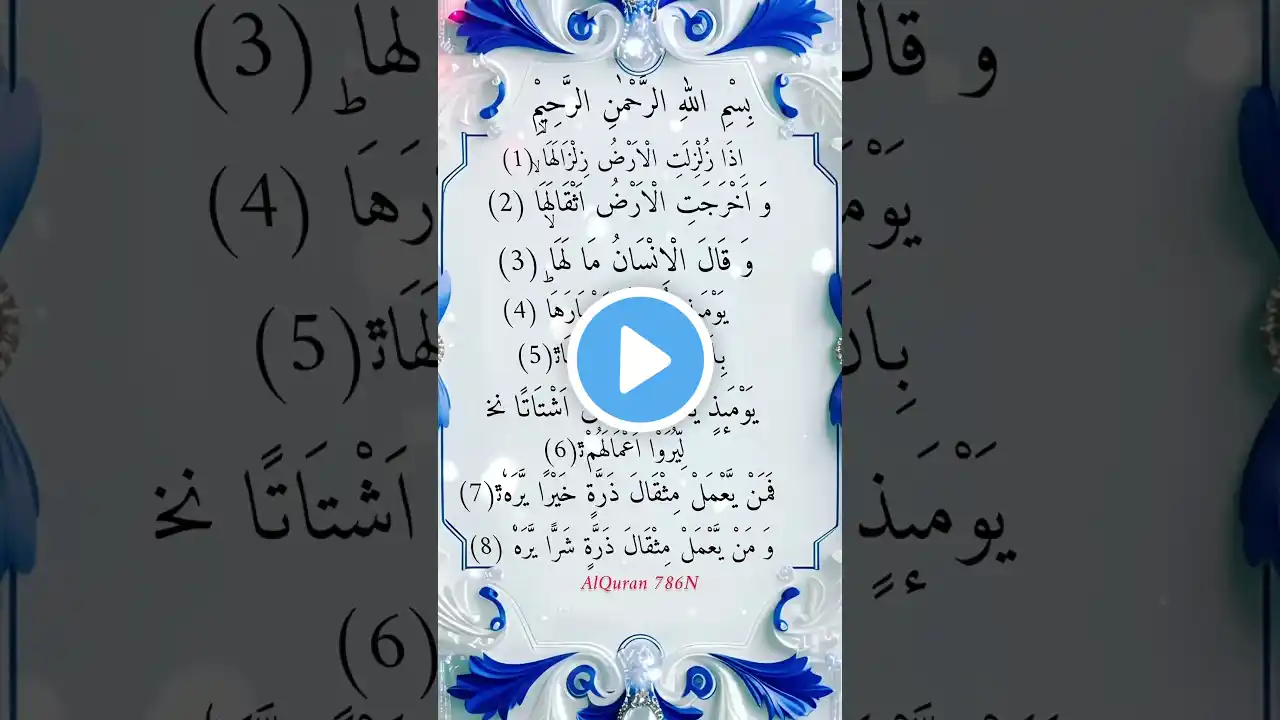 بِسْمِ اللهِ الرَّحْمٰنِ الرَّحِيْمِ
اِذَا زُلْزِلَتِ الْاَرْضُ زِلْزَالَهَاۙ (1)
وَ اَخْرَجَتِ الْاَرْضُ اَثْقَالَهَاۙ (2)
وَ قَالَ الْاِنْسَانُ مَا لَهَاۚ (3)
(4)
(5)
یَوْمَىٕذٍ اَشْتَاتًا نخ
لِّیُرَوْا اَعْمَالَهُمْؕ (6)
فَمَنْ یَّعْمَلْ مِثْقَالَ ذَرَّةٍ خَیْرًا یَّرَهٗؕ (7)
وَ مَنْ یَّعْمَلْ مِثْقَالَ ذَرَّةٍ شَرًّا یَّرَهٗ (8)
AlQuran 786N